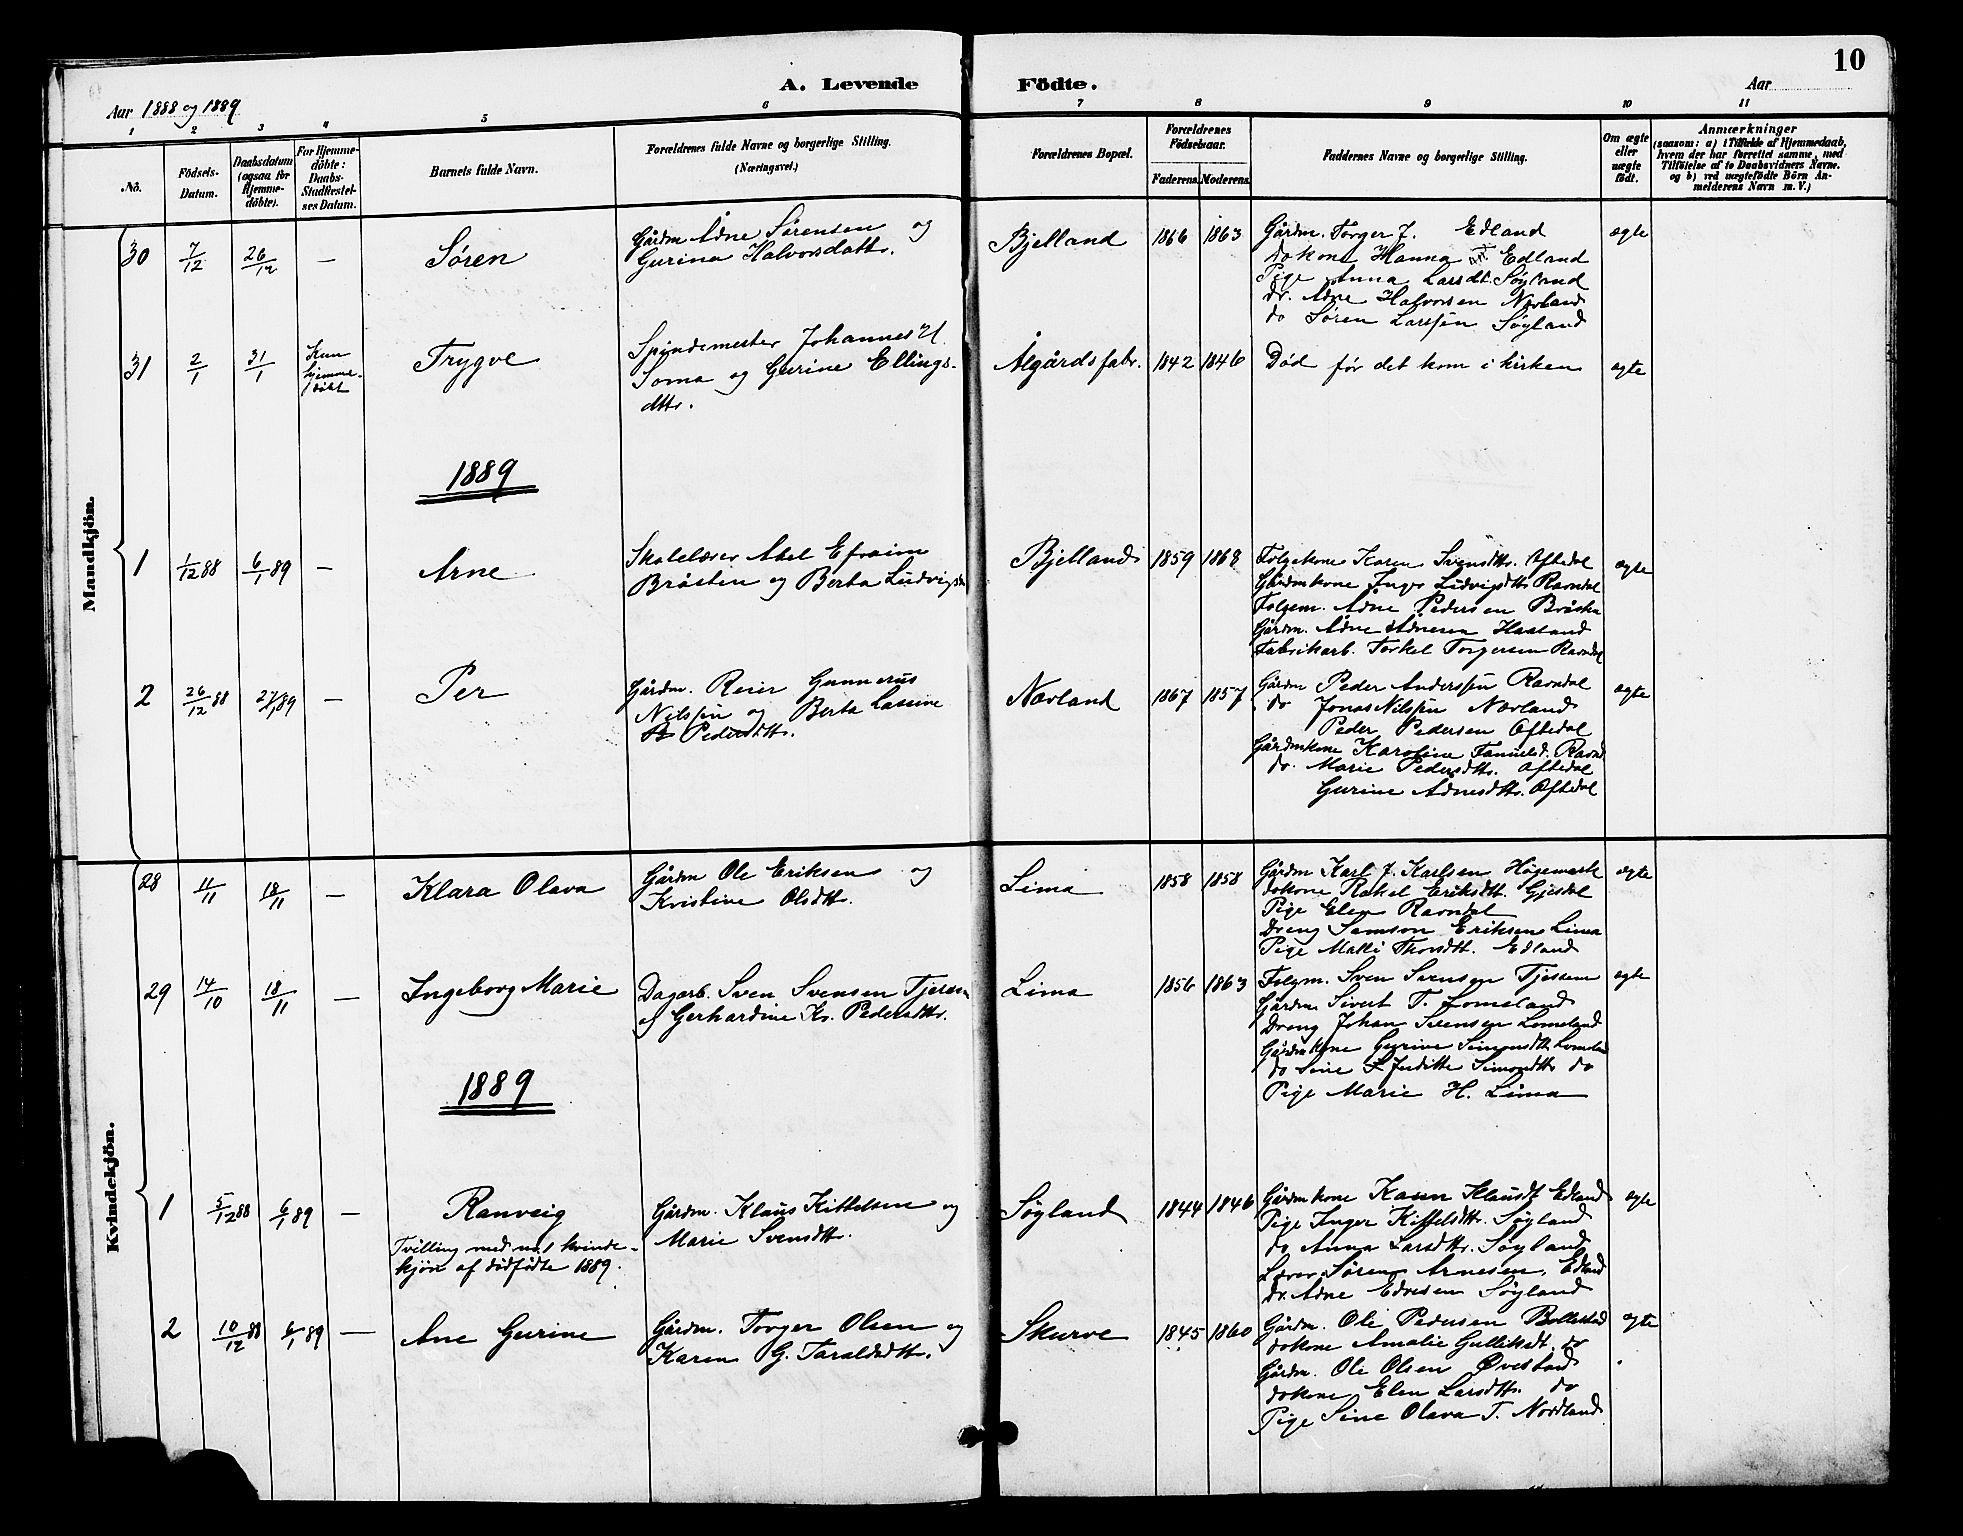 10
A. Levende Födte.
Aar 1888 og 1889
Aar
1 2 3 4 5 6 7 8 9 10 11
No.
Födsels-Datum.
Daabsdatum (ogsaa for Hjemme-döbte).
For Hjemme-döbte: Daabs-Stadfæstel-ses Datum.
Barnets fulde Navn.
Forældrenes fulde Navne og borgerlige Stilling.
(Næringsvei.)
Forældrenes Bopæl.
Forældrenes Födselsaar.
Faderens. Moderens.
Faddernes Navne og borgerlige Stilling.
Om ægte eller uægte födt.
Anmærkninger
(saasom: a) i Tilfælde af Hjemmedaab,
hvem der har forrettet samme, med
Tilföielse af to Daabsvidners Navne.
og b) ved uægtefödte Börn An-
melderens Navn m. V.)
Mandkjön.
30 7/12 26/12 — Søren
Gårdm. Ådne Sørensen og
Gurina Halvorsdattr.
Bjelland 1866 1863
Gårdm. Torger J. Edland
do kone Hanna Edland
Pige Anna Larsdt. Søyland
dr. Adne Halvorsen Nævland
do Søren Larssen Søyland
ægte
31 2/1 31/1 Kun hjemme-døbt Trygve
Spindemester Johannes
Soma og Gurine Ellings-
dttr.
Ålgårds fabr. 1842 1846
Død før det kom i kirken
ægte
1889
1 1/12 88 6/1 89 — Arne
Skolelærer Axel Efraim
Bråsten og Berta Ludvigsd
Bjelland 1859 1868
Folgekone Karen Svensdttr. Oftedal
Gårdmkone Inger Ludvigsdttr Ravndal
Folgem. Ådne Pedersen Bråsten
Gårdm. Ådne Adnesen Haaland
Fabrikarb. Torkel Torgersen Ravndal
ægte
2 26/12 88 27/1 89 — Per
Gårdm. Reier Gunnerus
Nilssen og Berta Lassine
Pedersdttr.
Nævland 1867 1857
Gårdm Peder Anderssen Ravndal
do Jonas Nilssen Nævland
Peder Pedersen Oftedal
Gårdmkone Karoline Ravnd
do. Marie Pedersdttr. Oftedal
Gurine Adnesdttr. Oftedal
ægte
Kvindekjön.
28 11/11 18/11 — Klara Olava
Gårdm Ole Eriksen og
Kristine Olsdttr.
Lima 1858 1858
Gårdm Karl J. Karlsen Høgemork
dokone Rakel Eriksdtt. Gjesdal
Pige Elen Ravndal
Dreng Samson Eriksen Lima
Pige Malli Thorsdtt. Edland
ægte
29 14/10 18/11 — Ingeborg Marie
Dagarb. Sven Svensen Tjessem
og Gerhardine Kr. Pedersdttr.
Lima 1856 1863
Folgm. Sven Svensen Tjessem
Gårdm Sivert T. Lomeland
Dreng Johan Svensen Lomeland
Gårdmkone Gurine Simonsdtt. Lomeland
do Sine Juditte Simondttr do
Pige Marie H. Lima
ægte
1889
1 5/12 88 6/1 89 — Ranveig
Tvilling med no. 1 kvinde-
kjøn af dødfødte 1889.
Gårdm. Klaus Kittelsen og
Marie Svensdttr.
Søyland 1844 1846
Gårdmkone Karen Klausdt Edland
Pige Inger Kittelsdttr. Søyland
do Anna Larsdttr. Søyland
Lærer Søren Arnesen, Edland
dr. Adne Edvesen Søyland
ægte
2 10/12 88 6/1 89 — Ane Gurine
Gårdm. Torger Olsen og
Karen G. Taraldsdttr.
Skurve 1845 1860
Gårdm. Ole Pedersen Bollestad
dokone Amalie Gulliksdt. do
Gårdm. Ole Olsen Øvestad
dokone Elen Larsdttr. do
Pige Sine Olava T. Nordland
ægte